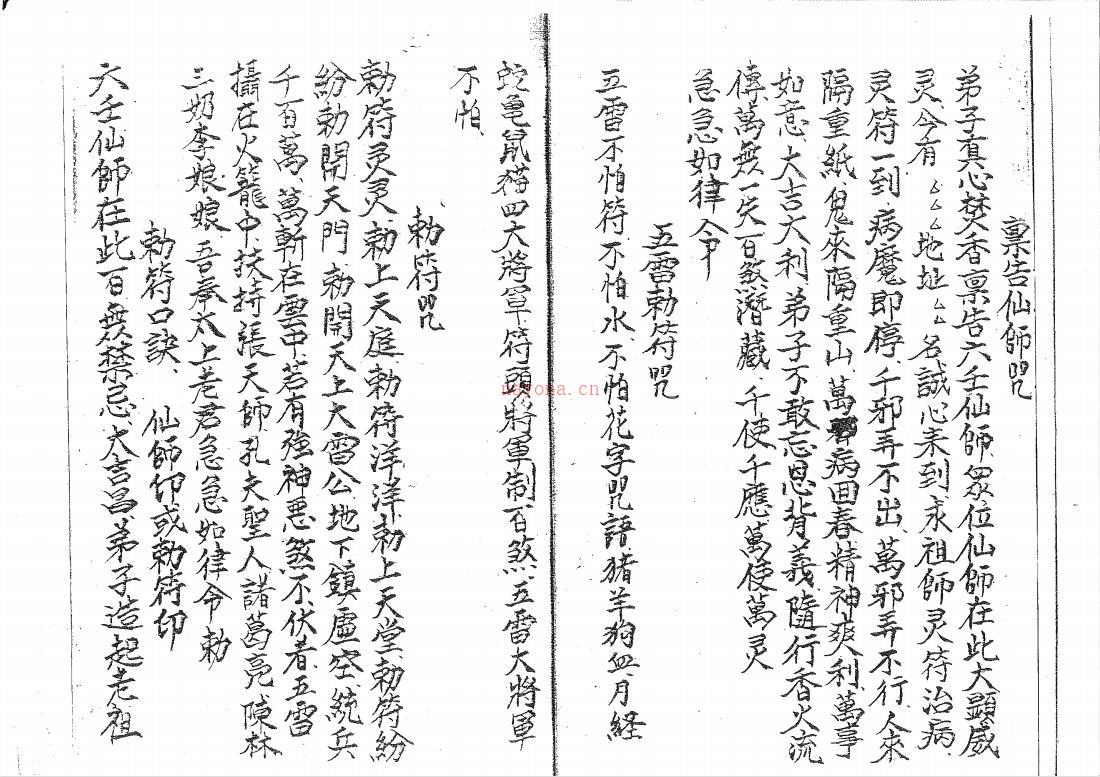 稟告仙師咒
弟子真心焚香稟告六壬仙師眾位仙師在此大顯威
灵今有ムムム地址ムム名誠心来到求祖師灵符治病
灵符一到病魔即停千邪弄不出萬邪弄不行人來
隔重紙鬼來隔重山萬病回春精神爽利萬事
如意大吉大利弟子不敢忘恩背義隨行香火流
傳萬無一失百煞潛藏千使千應萬使萬灵
急急如律令
五雷勅符咒
五雷不怕符不怕水不怕花字咒語猪羊狗血月経
蛇亀鼠猫四大將軍符頭將軍制百煞五雷大將軍
不怕
勅符咒
勅符灵灵勅上天庭勅符洋洋勅上天堂勅符紛
紛勅開天門勅開天上大雷公地下鎮虛空統兵
千百萬萬斬在雲中若有强神惡煞不伏者五雷
攝在火籠中扶持張天師孔夫聖人諸葛亮陳林
三奶李娘娘吾奉太上老君急急如律令勅
勅符口訣 仙師印或勅符印
六壬仙師在此百無禁忌大吉昌弟子造起老祖
nayona.cn